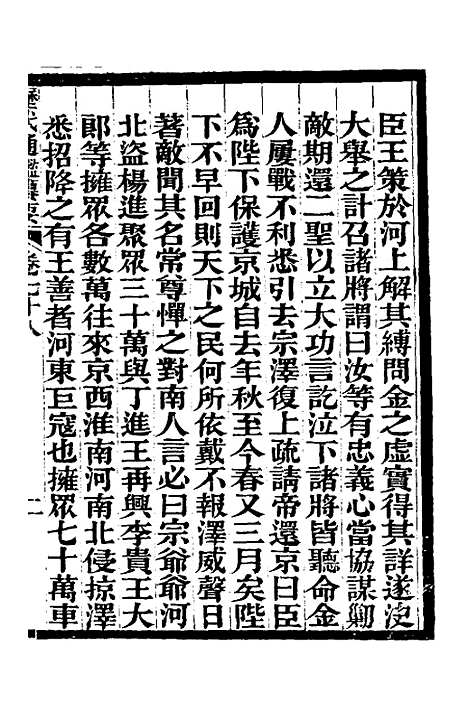 臣王策於河上解其縛問金之虛實得其詳遂決
大舉之計召諸將謂曰汝等有忠義心當協謀勦
敵期還二聖以立大功言訖泣下諸將皆聽命金
人屢戰不利悉引去宗澤復上疏請帝還京曰臣
為陛下保護京城自去年秋至今春又三月矣陛
下不早回則天下之民何所依戴不報澤威聲日
著敵聞其名常尊憚之對南人言必曰宗爺爺河
北盜楊進聚眾三十萬與丁進王再興李貴王大
郎等擁眾各數萬往來京西淮南河南北侵掠澤
悉招降之有王善者河東巨寇也擁眾七十萬車
歷代通鑑纂要 卷七十八 二